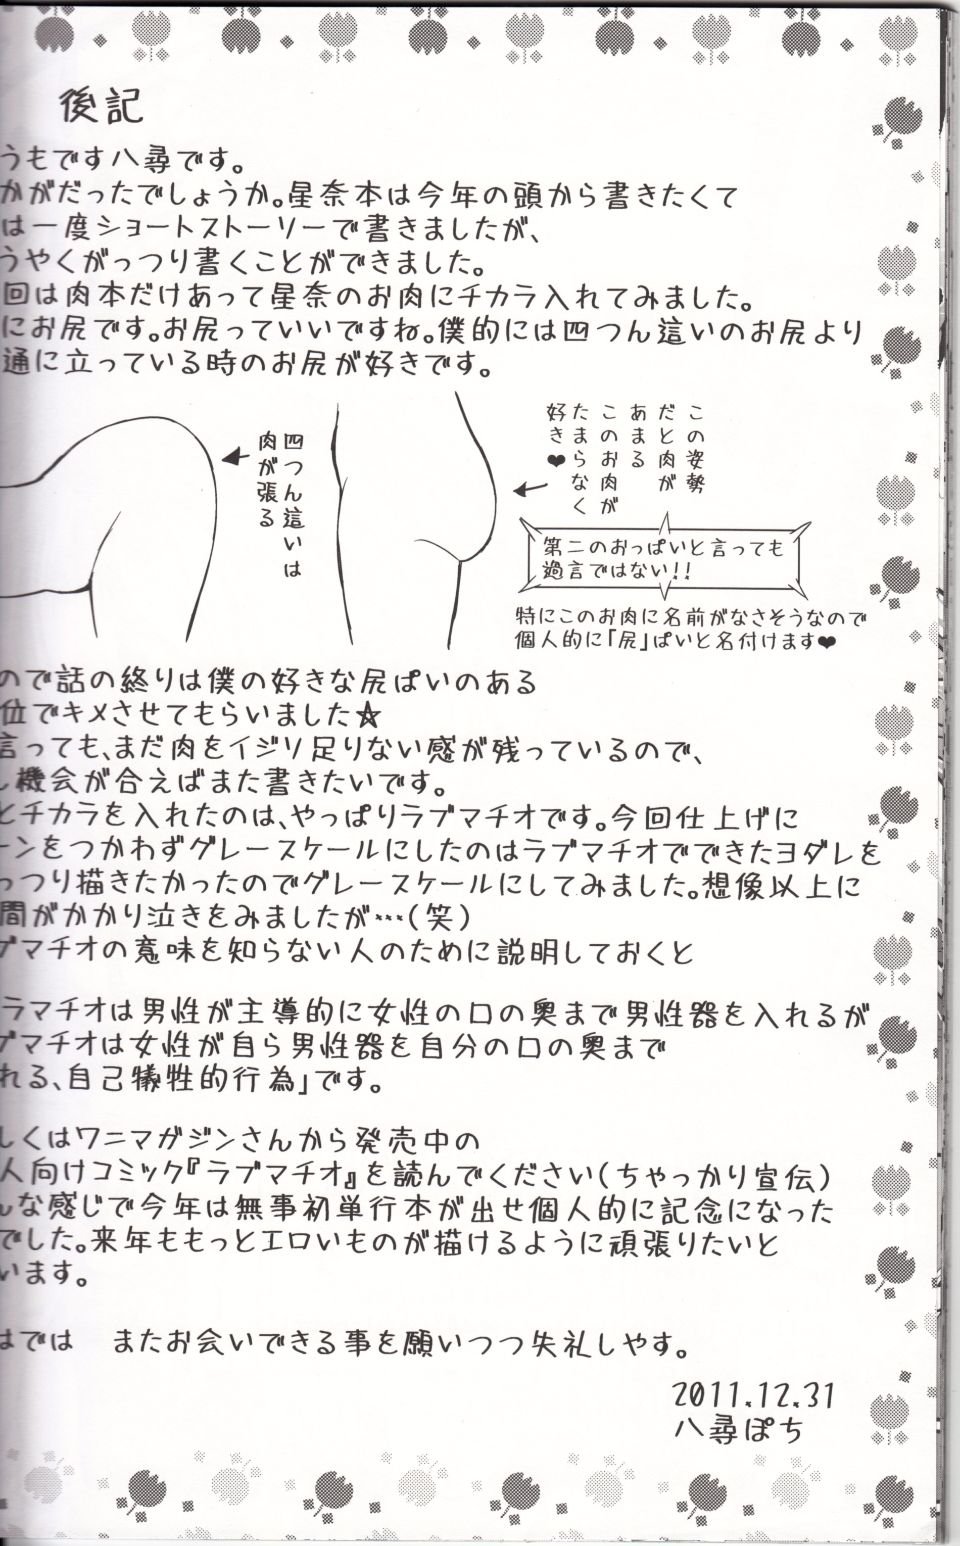 後記
うもです八尋です。
かがだったでしょうか。星奈本は今年の頭から書きたくて
は一度ショートストーリーで書きましたが、
うやくがっつり書くことができました。
回は肉本だけあって星奈のお肉にチカラ入れてみました。
にお尻です。お尻っていいですね。僕的には四つん這いのお尻より
通に立っている時のお尻が好きです。
四つん這いは
肉が張る
この姿勢
だと肉が
あまる
このお肉が
たまらなく
好き♥
第二のおっぱいと言っても
過言ではない!!
特にこのお肉に名前がなさそうなので
個人的に「尻」ぱいと名付けます♥
ので話の終りは僕の好きな尻ぱいのある
位でキメさせてもらいました☆
言っても、まだ肉をイジリ足りない感が残っているので、
し機会が合えばまた書きたいです。
とチカラを入れたのは、やっぱりラブマチオです。今回仕上げに
ーンをつかわずグレースケールにしたのはラブマチオでできたヨダレを
っつり描きたかったのでグレースケールにしてみました。想像以上に
間がかかり泣きをみましたが…(笑)
ブマチオの意味を知らない人のために説明しておくと
ラマチオは男性が主導的に女性の口の奥まで男性器を入れるが
ブマチオは女性が自ら男性器を自分の口の奥まで
れる、自己犠牲的行為」です。
しくはワニマガジンさんから発売中の
人向けコミック『ラブマチオ』を読んでください(ちゃっかり宣伝)
んな感じで今年は無事初単行本が出せ個人的に記念になった
でした。来年ももっとエロいものが描けるように頑張りたいと
います。
はでは　またお会いできる事を願いつつ失礼しやす。
2011.12.31
八尋ぽち